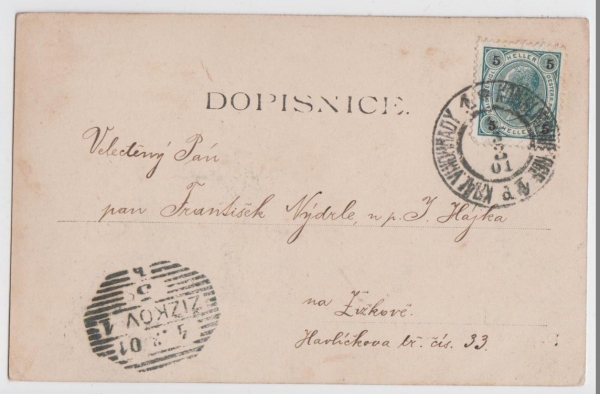 5 HELLER 5
DOPISNICE.
KRÁL. VINOHRADY 1
01
Velectěný Pán
pan František Nýdrle, u p. J. Hájka
na Žižkově.
Havlíčkova tř. čís. 33.
ŽIŽKOV 1
01